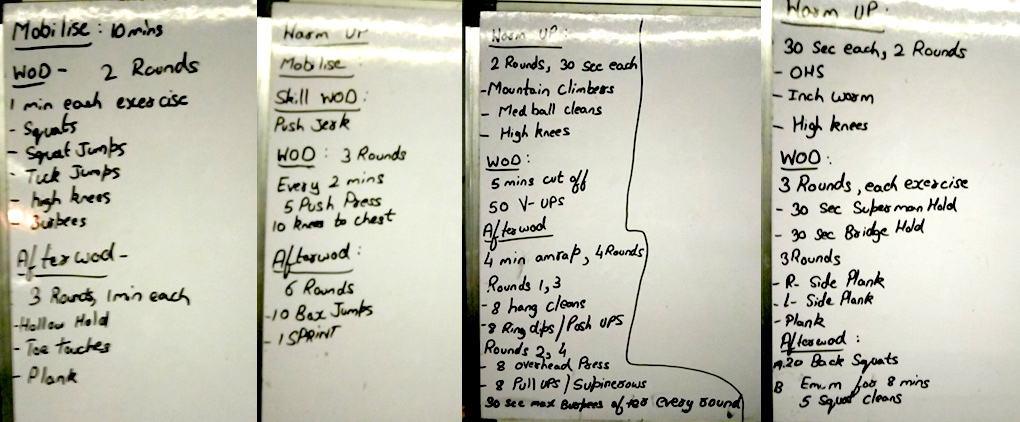 Mobilise: 10 mins
WOD - 2 Rounds
1 min each exercise
- Squats
- Squat Jumps
- Tuck Jumps
- high knees
- Burpees
Afterwod -
3 Rounds, 1 min each
- Hollow Hold
- Toe touches
- Plank
Warm UP
Mobilise:
Skill WOD:
Push Jerk
WOD: 3 Rounds
Every 2 mins
5 Push Press
10 knees to chest
Afterwod:
6 Rounds
- 10 Box Jumps
- 1 SPRINT
Warm UP:
2 Rounds, 30 sec each
- Mountain Climbers
- Med ball cleans
- High knees
WOD:
5 mins cut off
50 V-UPS
Afterwod
4 min amrap, 4 Rounds
Rounds 1, 3
- 8 hang cleans
- 8 Ring dips / Push UPS
Rounds 2, 4
- 8 overhead Press
- 8 Pull UPS / Supinerows
30 sec max Burpees after every round
Warm UP:
30 Sec each, 2 Rounds
- OHS
- Inch worm
- High knees
WOD:
3 Rounds, each exercise
- 30 sec Superman Hold
- 30 sec Bridge Hold
3 Rounds
- R- Side Plank
- L- Side Plank
- Plank
Afterwod:
A. 20 Back Squats
B Emom for 8 mins
5 Squat cleans